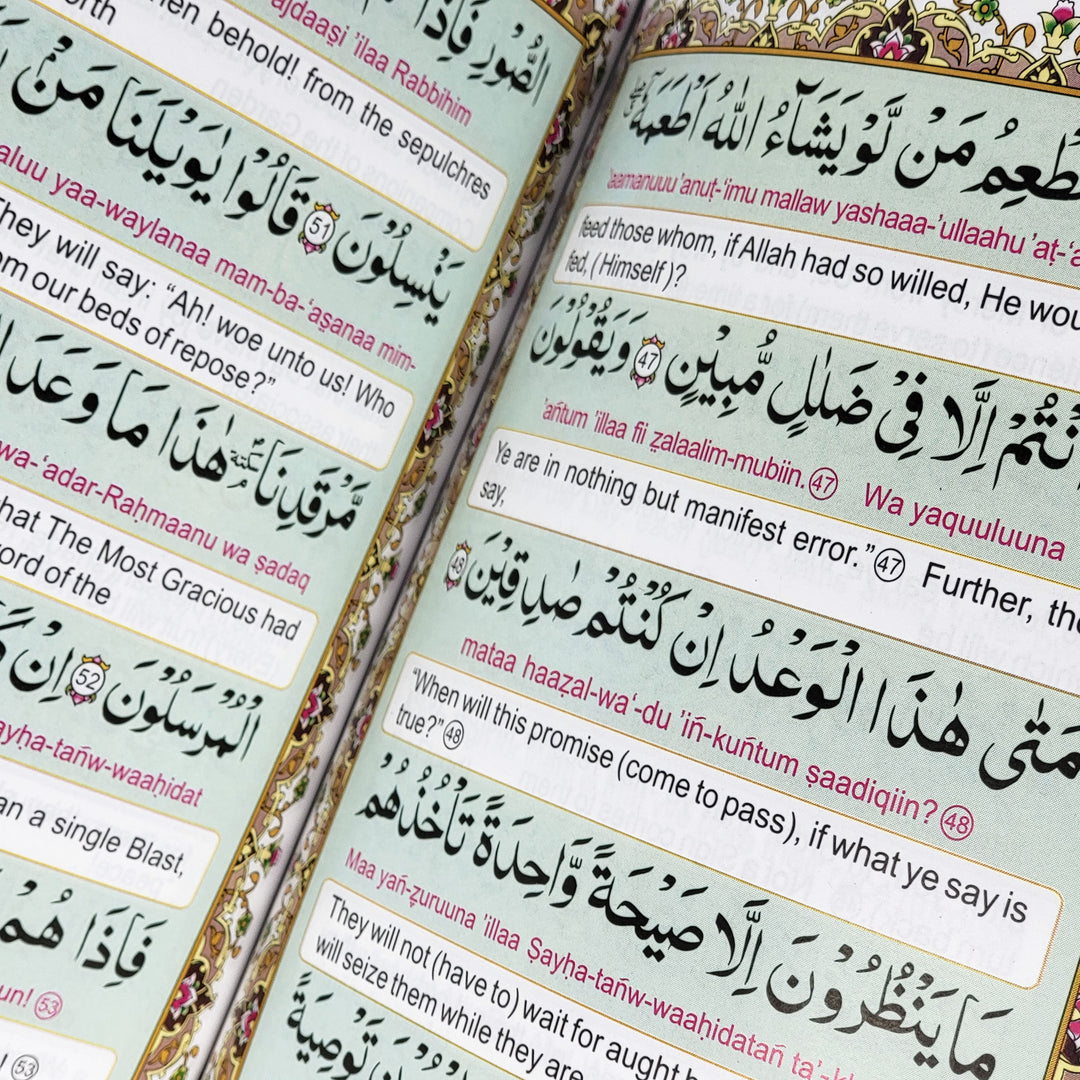 طْعِمُ مَنْ لَّوْ يَشَآءُ اللهُ اَطْعَمَهٗٓ
'aamanuuu 'anuṭ-'imu mallaw yashaaa-'ullaahu 'aṭ-'a
feed those whom, if Allah had so willed, He wou
fed, (Himself)?
نْتُمْ اِلَّا فِيْ ضَلٰلٍ مُّبِيْنٍ 47 وَيَقُوْلُوْنَ
'añtum 'illaa fii ẓalaalim-mubiin. 47 Wa yaquuluuna
Ye are in nothing but manifest error.” 47 Further, the
say,
مَتٰى هٰذَا الْوَعْدُ اِنْ كُنْتُمْ صٰدِقِيْنَ 48
mataa haaẓal-wa‘-du 'iñ-kuñtum ṣaadiqiin? 48
“When will this promise (come to pass), if what ye say is
true?” 48
مَا يَنْظُرُوْنَ اِلَّا صَيْحَةً وَّاحِدَةً تَاْخُذُهُمْ
Maa yañ-ẓuruuna 'illaa Ṣayḥa-tañw-waaḥidatañ ta'-k
They will not (have to) wait for aught b
will seize them while they are
تَوْصِيَةً
الصُّوْرِ فَاِذَا
ajdaaṣi 'ilaa Rabbihim
orth
hen behold! from the sepulchres
يَنْسِلُوْنَ 51 قَالُوْا يٰوَيْلَنَا مَنْۢ
aluu yaa-waylanaa mam-ba-‘aṣanaa mim-
They will say: “Ah! woe unto us! Who
om our beds of repose?”
مَّرْقَدِنَا سكتة هٰذَا مَا وَعَدَ
wa-‘adar-Raḥmaanu wa ṣadaq
hat The Most Gracious had
ord of the
الْمُرْسَلُوْنَ 52 اِنْ
ayḥa-tañw-waaḥidat
an a single Blast,
فَاِذَا هُمْ
un! 53
! 53